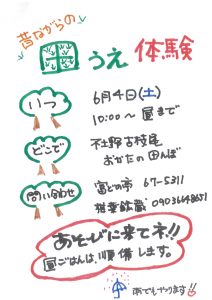 昔ながらの
田うえ 体験
いつ
6月4日(土)
10:00〜 昼まで
どこで
不土野古枝尾
おかたの田んぼ
問い合わせ
富との市 67-5311
090
あそびに来てネ!!
昼ごはんは、準備します。
雨でもやります!!